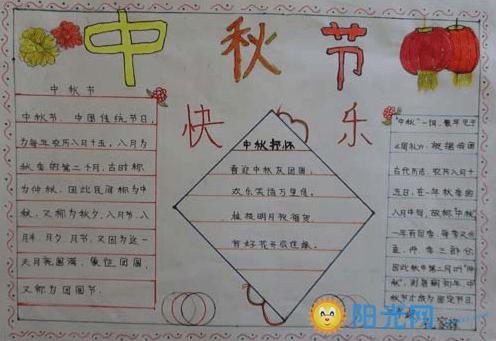 中秋节
快乐
中秋节
中秋节，中国传统节日，
为每年农历八月十五，八月为
秋季的第二个月，古时称
为仲秋，因此民间称为中
秋，又称为秋夕、八月节、八
月半、月夕、月节，又因为这一
天月亮圆满，象征团圆，
又称为团圆节。
中秋抒怀
喜迎中秋友团圆，
欢乐笑语万里传。
有好花
"中秋"一词，最早见于
《周礼》，根据我国
古代历法，农历八月十
五日，在一年秋季的
八月中旬，故称"中秋"
一年有四季，每季又分
孟、仲、季三部分，
因此秋中第二月叫"仲
秋"，到唐朝初年，中
秋节才成为固定节日
阳光网